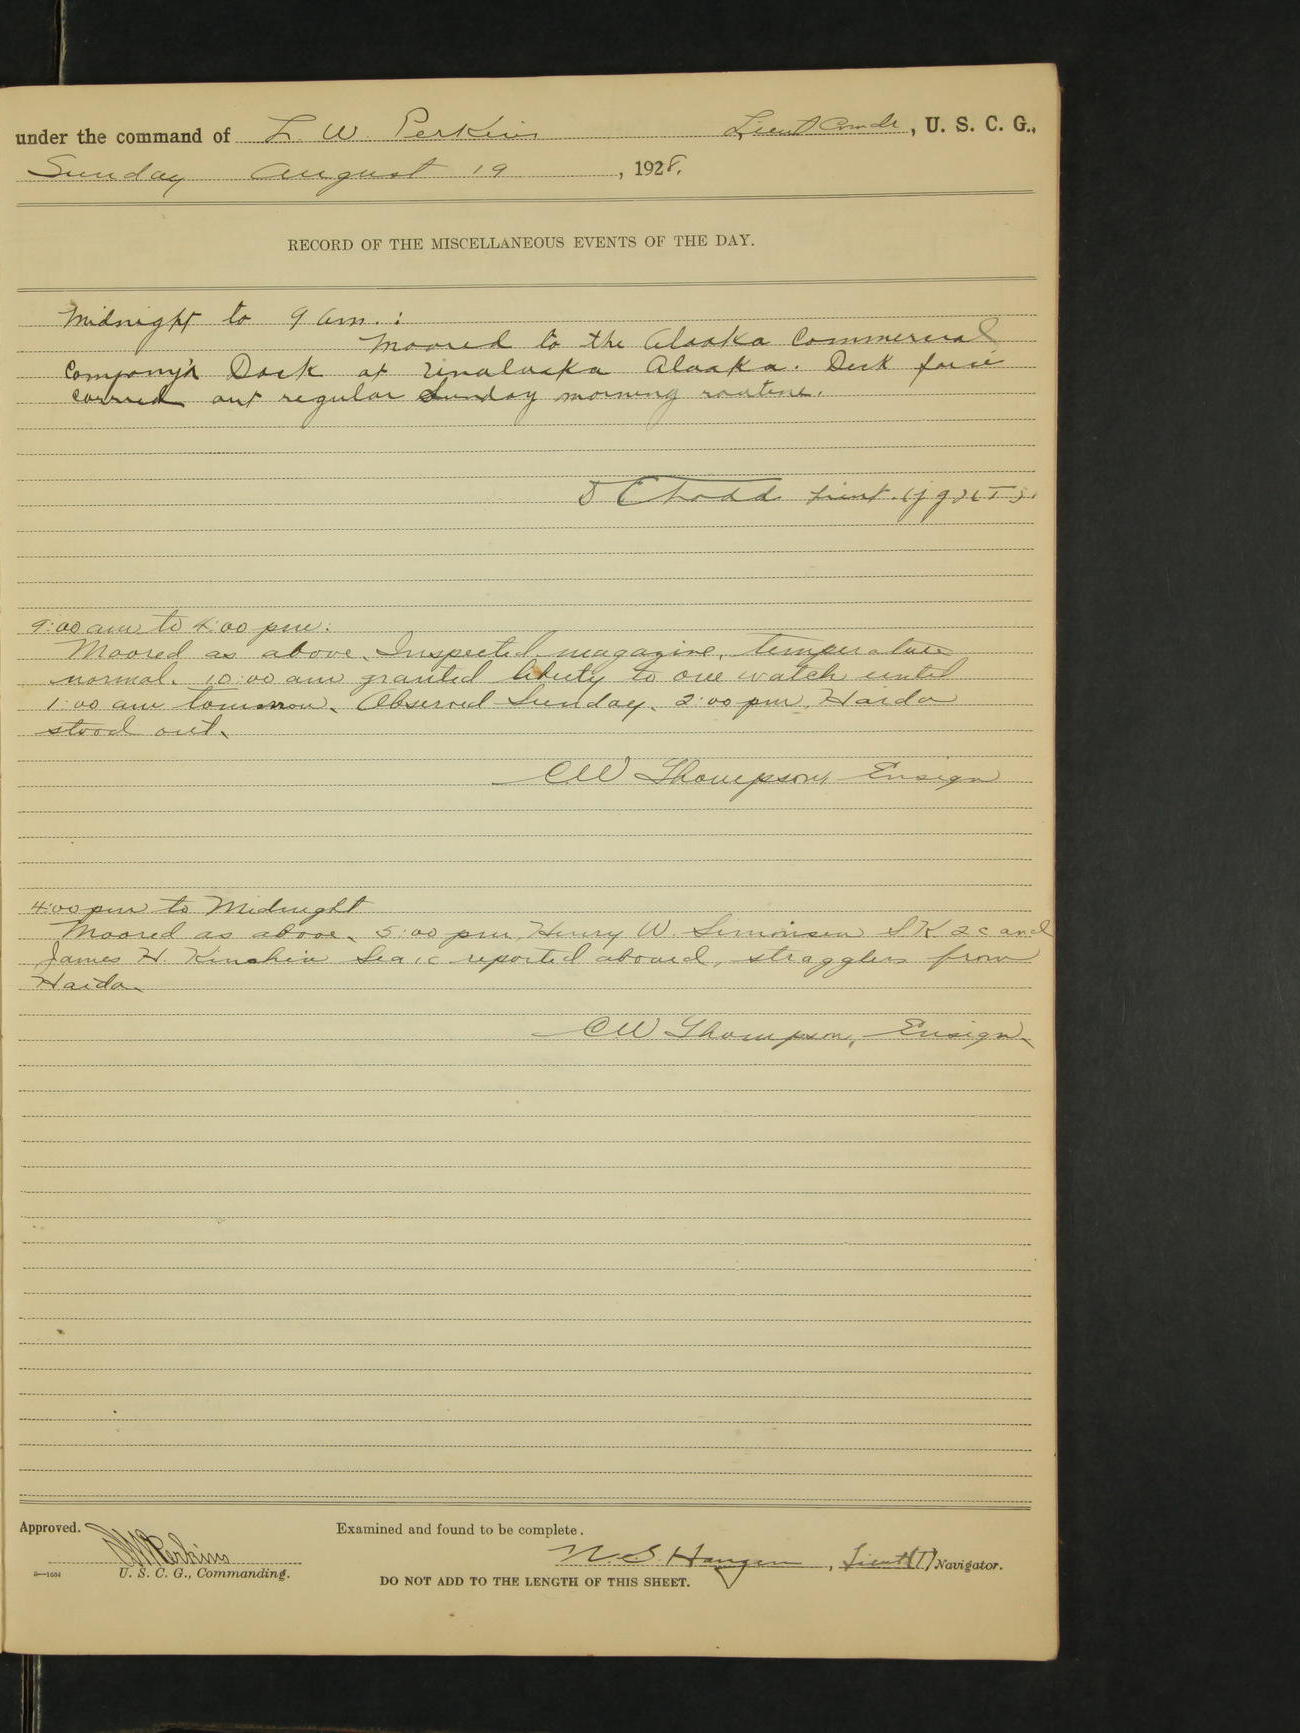 under the command of L. W. Perkins Lieut Comdr, U. S. C. G.,
Sunday August 19, 1928.
RECORD OF THE MISCELLANEOUS EVENTS OF THE DAY.
Midnight to 9 am. :
Moored to the Alaska Commercial
Company's Dock at Unalaska Alaska. Deck force
carried out regular Sunday morning routine.
Lieut. (jg)(T).
9:00 am to 4:00 pm.
Moored as above. Inspected magazine, temperature
normal. 10:00 am granted liberty to one watch until
1:00 am tomorrow. Observed Sunday. 2:00 pm, Haida
stood out.
CW Thompson, Ensign
4:00 pm to Midnight
Moored as above. 5:00 pm, Henry W. Simonsen SK 2c and
James H. Sea 1c reported aboard, stragglers from
Haida.
CW Thompson, Ensign.
Approved. Examined and found to be complete.
Perkins N. S. Haugen, Lieut(T) Navigator.
U. S. C. G., Commanding.
DO NOT ADD TO THE LENGTH OF THIS SHEET.